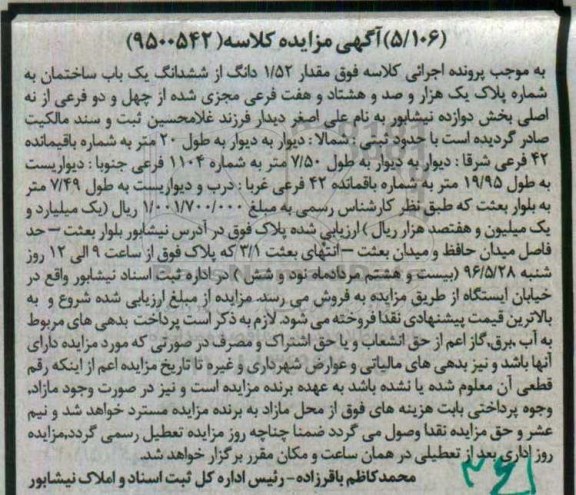 (۵/۱۰۶)آگهی مزایده کلاسه(۹۵۰۰۵۴۲)
به موجب پرونده اجرائی کلاسه فوق مقدار ۱/۵۲ دانگ از ششدانگ یک باب ساختمان به
شماره پلاک یک هزار و صد و هشتاد و هفت فرعی مجزی شده از چهل و دو فرعی از نه
اصلی بخش دوازده نیشابور به نام علی اصغر دیدار فرزند غلامحسین ثبت و سند مالکیت
صادر گردیده است با حدود ثبتی : شمالا : دیوار به دیوار به طول ۲۰ متر به شماره باقیمانده
۴۲ فرعی شرقا : دیوار به دیوار به طول ۷/۵۰ متر به شماره ۱۱۰۴ فرعی جنوبا : دیواریست
به طول ۱۹/۹۵ متر به شماره باقمانده ۴۲ فرعی غربا : درب و دیواریست به طول ۷/۴۹ متر
به بلوار بعثت که طبق نظر کارشناس رسمی به مبلغ ۱/۰۰۱/۷۰۰/۰۰۰ ریال (یک میلیارد و
یک میلیون و هفتصد هزار ریال ) ارزیابی شده پلاک فوق در آدرس نیشابور بلوار بعثت – حد
فاصل میدان حافظ و میدان بعثت – انتهای بعثت ۳/۱ که پلاک فوق از ساعت ۹ الی ۱۲ روز
شنبه ۹۶/۵/۲۸ (بیست و هشتم مردادماه نود و شش ) در اداره ثبت اسناد نیشابور واقع در
خیابان ایستگاه از طریق مزایده به فروش می رسد. مزایده از مبلغ ارزیابی شده شروع و به
بالاترین قیمت پیشنهادی نقدا فروخته می شود. لازم به ذکر است پرداخت بدهی های مربوط
به آب ،برق،گاز اعم از حق انشعاب و یا حق اشتراک و مصرف در صورتی که مورد مزایده دارای
آنها باشد و نیز بدهی های مالیاتی و عوارض شهرداری و غیره تا تاریخ مزایده اعم از اینکه رقم
قطعی آن معلوم شده یا نشده باشد به عهده برنده مزایده است و نیز در صورت وجود مازاد،
وجوه پرداختی بابت هزینه های فوق از محل مازاد به برنده مزایده مسترد خواهد شد و نیم
عشر و حق مزایده نقدا وصول می گردد ضمنا چناچه روز مزایده تعطیل رسمی گردد،مزایده
روز اداری بعد از تعطیلی در همان ساعت و مکان مقرر برگزار خواهد شد.
محمدکاظم باقرزاده - رئیس اداره کل ثبت اسناد و املاک نیشابور